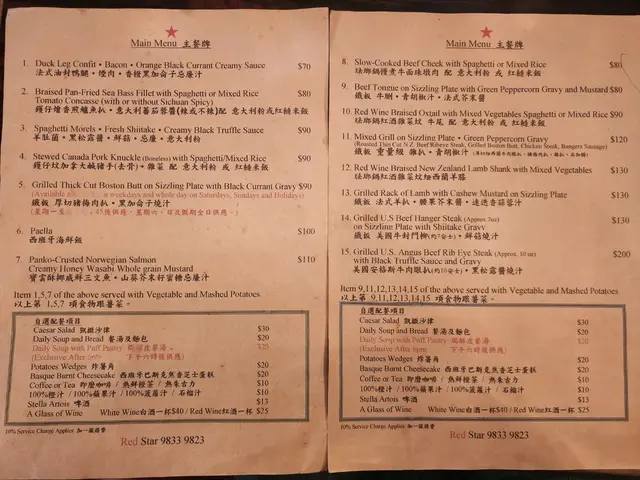 Main Menu 主餐牌
1. Duck Leg Confit・Bacon・Orange Black Currant Creamy Sauce $70
法式油封鴨腿・煙肉・香橙黑加侖子忌廉汁
2. Braised Pan-Fried Sea Bass Fillet with Spaghetti or Mixed Rice $80
Tomato Concasse (with or without Sichuan Spicy)
鑊仔燴香煎鱸魚扒・意大利蕃茄蓉醬(辣或不辣)配 意大利粉 或紅糙米飯
3. Spaghetti Morels・Fresh Shiitake・Creamy Black Truffle Sauce $90
羊肚菌・黑松露醬・鮮菇・忌廉・意大利粉
4. Stewed Canada Pork Knuckle (Boneless) with Spaghetti/Mixed Rice $90
鑊仔炆加拿大鹹豬手(去骨)・雜菜 配 意大利粉 或 紅糙米飯
5. Grilled Thick Cut Boston Butt on Sizzling Plate with Black Currant Gravy $90
weekdays and whole day on Saturdays, Sundays and Holidays)
鐵板 厚切豬梅肉扒・黑加侖子燒汁
6. Paella $60
西班牙海鮮飯
7. Panko-Crusted Norwegian Salmon $110
Creamy Honey Wasabi Whole grain Mustard
寶雲酥挪威鮮三文魚・山葵芥末籽蜜糖忌廉汁
Item 1,5,7 of the above served with Vegetable and Mashed Potatoes
以上第 1,5,7 項食物跟薯菜。
自選配餐項目
Caesar Salad 凱撒沙律 $30
Daily Soup and Bread 餐湯及麵包 $20
Daily Soup with Puff Pastry 焗酥皮餐湯 $25
(Exclusive After 6pm) 下午六時後供應)
Potatoes Wedges 炸薯角 $20
Basque Burnt Cheesecake 西班牙巴斯克焦香芝士蛋糕 $20
Coffee or Tea 即磨咖啡 / 熱鮮橙茶 / 熱朱古力 $10
100%橙汁 / 100%蘋果汁 / 100%菠蘿汁 / 石榴汁 $10
Stella Artois 啤酒 $13
A Glass of Wine White Wine白酒一杯$40 / Red Wine紅酒一杯 $25
10% Service Charge Applies 加一服務費
Red Star 9833 9823
Main Menu 主餐牌
8. Slow-Cooked Beef Cheek with Spaghetti or Mixed Rice $80
琺瑯鍋慢煮牛面珠墩肉 配 意大利粉 或 紅糙米飯
9. Beef Tongue on Sizzling Plate with Green Peppercorn Gravy and Mustard $80
鐵板 牛脷・青胡椒汁・法式芥末醬
10. Red Wine Braised Oxtail with Mixed Vegetables Spaghetti or Mixed Rice $90
琺瑯鍋紅酒雜菜炆 牛尾 配 意大利粉 或 紅糙米飯
11. Mixed Grill on Sizzling Plate・Green Peppercorn Gravy $120
(Roasted Thin Cut N.Z. Beef Ribeye Steak, Grilled Boston Butt, Chicken Steak, Bangers Sausage)
鐵板 重量級 雜扒・青胡椒汁
12. Red Wine Braised New Zealand Lamb Shank with Mixed Vegetables $130
琺瑯鍋紅酒雜菜炆紐西蘭羊膝
13. Grilled Rack of Lamb with Cashew Mustard on Sizzling Plate $130
鐵板 法式羊扒・腰果芥末醬・迷迭香蒜蓉汁
14. Grilled U.S Beef Hanger Steak (Approx 7oz) $130
on Sizzling Plate with Shiitake Gravy
鐵板 美國牛封門柳(約7安士)・鮮菇燒汁
15. Grilled U.S. Angus Beef Rib Eye Steak (Approx. 10 oz) $200
with Black Truffle Sauce and Gravy
美國安格斯牛肉眼扒(約10安士)・黑松露醬燒汁
Item 9,11,12,13,14,15 of the above served with Vegetable and Mashed Potatoes
以上第 9,11,12,13,14,15 項食物跟薯菜。
自選配餐項目
Caesar Salad 凱撒沙律 $30
Daily Soup and Bread 餐湯及麵包 $20
Daily Soup with Puff Pastry 焗酥皮餐湯 $25
(Exclusive After 6pm 下午六時後供應)
Potatoes Wedges 炸薯角 $20
Basque Burnt Cheesecake 西班牙巴斯克焦香芝士蛋糕 $20
Coffee or Tea 即磨咖啡 / 熱鮮橙茶 / 熱朱古力 $10
100%橙汁 / 100%蘋果汁 / 100%菠蘿汁 / 石榴汁 $10
Stella Artois 啤酒 $13
A Glass of Wine White Wine白酒一杯$40 / Red Wine紅酒一杯 $25
10% Service Charge Applies 加一服務費
Red Star 9833 9823